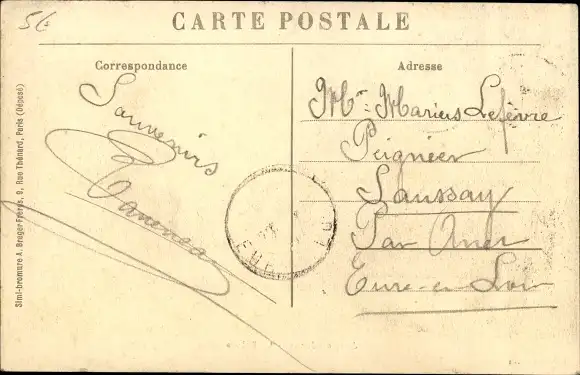 56
CARTE POSTALE
Correspondance
Adresse
Souvenirs
Mr. Marius Lefèvre
Peignier
Saussay
Par Anet
Eure-en-Loir
Simi-bromure A. Breger Frères, 9, Rue Thénard, Paris (Déposé)